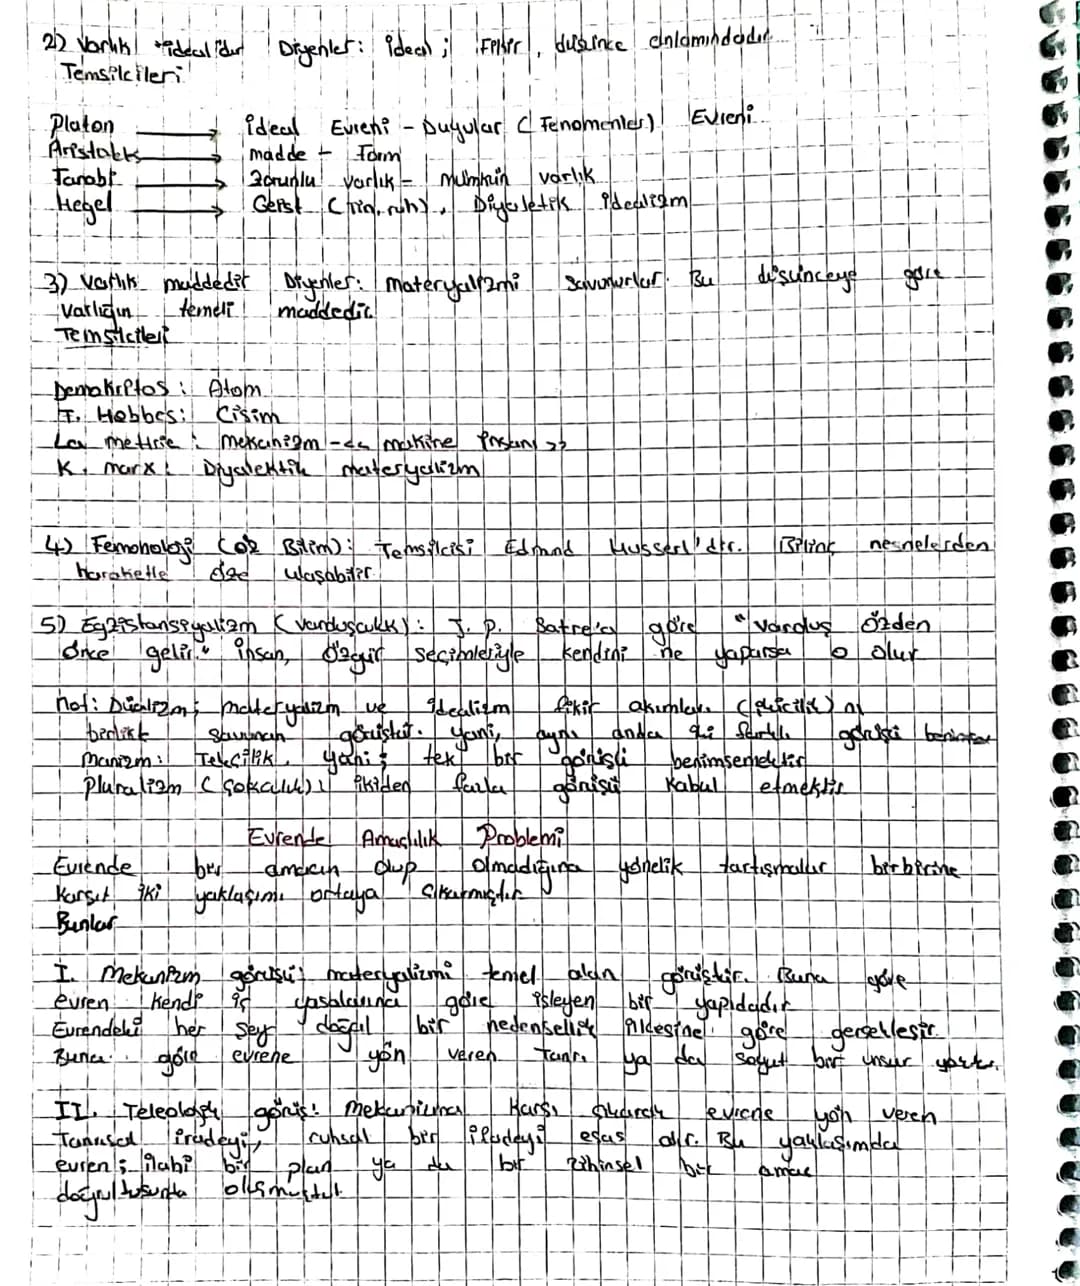 2) Varlık "ideal"dir Diyenler: ideal; Fikir, düşünce anlamındadır.
Temsilcileri
Platon → ideal Evreni - Duygular (Fenomenler) Evreni
Aristoteles → madde - Form
Farabi → Zorunlu varlık - mümkün varlık
Hegel → Geist (Tin, ruh), Diyalektik idealizm
3) Varlık maddedir Diyenler: materyalizmi savunurlar. Bu düşünceye göre
varlığın temeli maddedir.
Temsilcileri
Demokritos: Atom
T. Hobbes: Cisim
La mettrie: mekanizm - << makine insan >>
K. marx: Diyalektik materyalizm
4) Femonoloji (öz Bilim): Temsilcisi Edmund Husserl'dir. Bilinç nesnelerden
hareketle öze ulaşabilir.
5) Egzistansiyalizm (varoluşculuk): J. P. Satre'a göre "varoluş özden
önce gelir." insan, özgür seçimleriyle kendini ne yaparsa o olur
not: Düalizm; materyalizm ve idealizm fikir akımları (ikicilik) nı
birlikte savunan görüştür. yani, aynı anda iki farklı görüşü
Monizm: Tekçilik. yani; tek bir görüşü benimsemektir
Pluralizm (çokculuk): ikiden fazla görüşü kabul etmektir
Evrende Amaçlılık Problemi
Evrende bir amacın olup olmadığına yönelik tartışmalar birbirine
karşıt iki yaklaşımı ortaya çıkarmıştır
Bunlar
I. Mekanizm görüşü: materyalizmi temel alan görüştür. Buna göre
evren kendi iç yasalarına göre işleyen bir yapıdadır
Evrendeki her şey doğal bir nedensellik ilkesine göre gerçekleşir.
Buna göre evrene yön veren Tanrı ya da soyut bir unsur yoktur.
II. Teleolojik görüş: Mekanizma karşı çıkarak evrene yön veren
Tanrısal iradeyi, ruhsal bir iradeyi esas alır. Bu yaklaşımda
evren; ilahi bir plan ya da bir zihinsel bir amaç
doğrultusunda oluşmuştur.